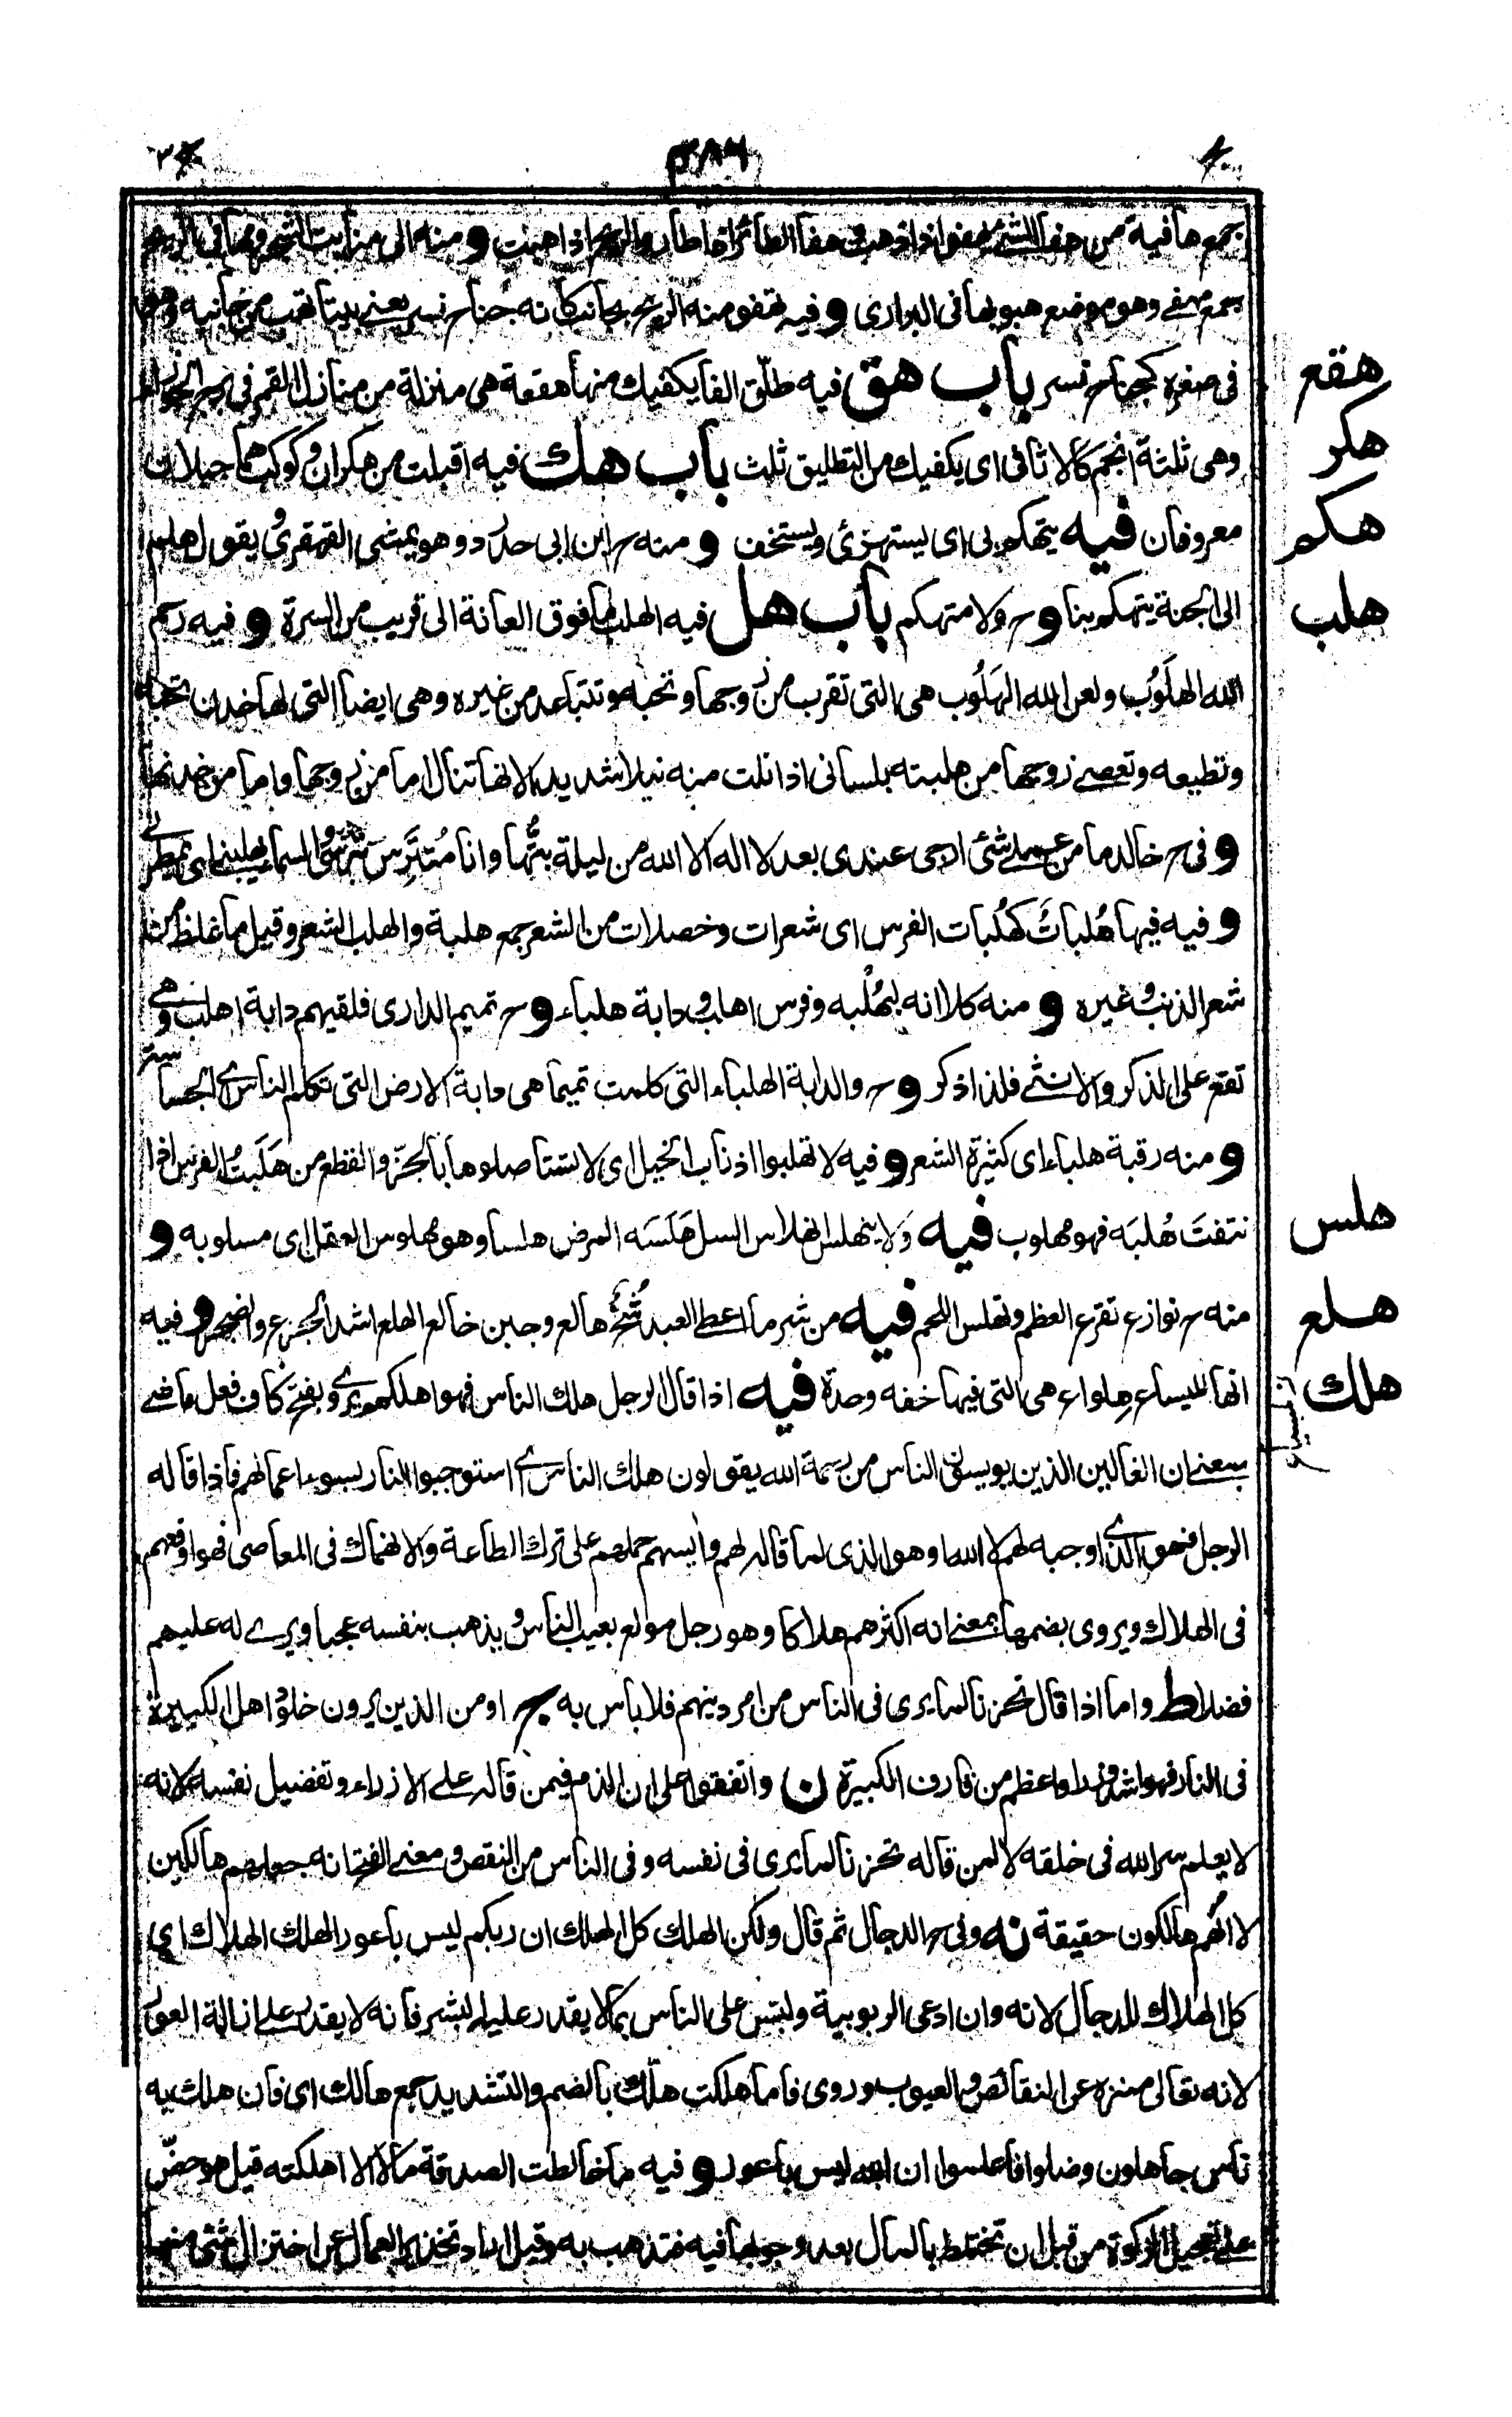 ٣٨٦
جمع هافية من هفا الشئ يهفو اذا ذهب وهفا الطائر اذا طار والريح اذا هبت و منه الى منابت الشيح ومهافي الريح
جمع مهفى وهو موضع هبوبها فى البرارى و فيه تهفو منه الريح بجانب كانه جناح نسر يعنى بيتا تهب من جانبه وهو
فى صغره كجناح نسر باب هق فيه طلّق الفا يكفيك منها هقعة هى منزلة من منازل القمر فى برج الجوزاء
وهى ثلثة انجم كالاثافى اى يكفيك من التطليق ثلث باب هك فيه اقبلت من هكران وكوكب هما جبلان
معروفان فيه يتهكم بى اى يستهزئ ويستخف و منه ح ابن ابى حدرد وهو يمشى القهقرى ويقول هلم
الى الجنة يتهكم بنا و ح ولا متهكم باب هل فيه الهلب ما فوق العانة الى قريب من السرة و فيه رحم
الله الهلوب ولعن الله الهلوب هى التى تقرب من زوجها وتحبه وتتباعد من غيره وهى ايضا التى لها خدن تحبه
وتطيعه وتعصى زوجها من هلبته بلسانى اذا نلت منه نيلا شديدا لانها تنال اما من زوجها واما من خدنها
و فى ح خالد ما من عملى شئ ارجى عندى بعد لا اله الا الله من ليلة بتّها وانا متترّس بترسى والسماء تهلبنى اى تمطرنى
و فيه فيها هلبات كهلبات الفرس اى شعرات وخصلات من الشعر جمع هلبة والهلب الشعر وقيل ما غلظ من
شعر الذنب وغيره و منه كلا انه لبهلبه وفرس اهلب ودابة هلباء و ح تميم الدارى فلقيهم دابة اهلب وهى
تقع على الذكر والانثى فلذا ذكر و ح والدابة الهلباء التى كلمت تميما هى دابة الارض التى تكلم الناس اى الجساسة
و منه رقبة هلباء اى كثيرة الشعر و فيه لا تهلبوا اذناب الخيل اى لا تستأصلوها بالجزّ والقطع من هلبت الفرس اذا
نتفت هلبه فهو مهلوب فيه ولا ينهلس الهلاس السل هلسه المرض هلسا وهو مهلوس العقل اى مسلوبه و
منه ح نوازع تقرع العظم وتهلس اللحم فيه من شر ما اعطى العبد شحّ هالع وجبن خالع الهلع اشد الجزع والضجر و فيه
انها لمیساع هلواع هى التى فيها خفه وحدة فيه اذا قال الرجل هلك الناس فهو اهلكهم يروى بفتح كاف فعل ماضى
بمعنى ان الغالين الذين يويسون الناس من رحمة الله يقولون هلك الناس اى استوجبوا النار بسوء اعمالهم فاذا قاله
الرجل فهو الذى اوجبه لهم لا الله او هو الذى لما قاله لهم وآيسهم حملهم على ترك الطاعة والانهماك فى المعاصى فهو اوقعهم
فى الهلاك ويروى بضمها بمعنى انه اكثرهم هلاكا وهو رجل مولع بعيب الناس ويذهب بنفسه عجبا ويرى له عليهم
فضلا ط واما اذا قال تحزنا لما يرى فى الناس من امر دينهم فلا باس به ج او من الذين يرون خلود اهل الكبيرة
فى النار فهو اشد وزرا واعظم من قارف الكبيرة ن واتفقوا على ان الذم فيمن قاله على الازراء وتفضيل نفسه لانه
لا يعلم سر الله فى خلقه لا لمن قاله تحزنا لما يرى فى نفسه وفى الناس من النقص ومعنى الفتح انه جعلهم هالكين
لا انهم هالكون حقيقة نه وفى ح الدجال ثم قال ولكن الهلك كل الهلك ان ربكم ليس باعور الهلك الهلاك اى
كل الهلاك للدجال لانه وان ادعى الربوبية ولبّس على الناس بما لا يقدر عليه البشر فانه لا يقدر على ازالة العور
لانه تعالى منزه عن النقائص والعيوب وروى فاما هلكت هلّك بالضم والتشديد جمع هالك اى فان هلك به
ناس جاهلون وضلوا فاعلموا ان الله ليس باعور و فيه ما خالطت الصدقة مالا الا اهلكته قيل هو حضّ
على تعجيل الزكوة من قبل ان تختلط بالمال بعد وجوبها فيه فتذهب به وقيل اراد تحذير العمال عن اختزال شئ منها
هقع
هكر
هكم
هلب
هلس
هلع
هلك